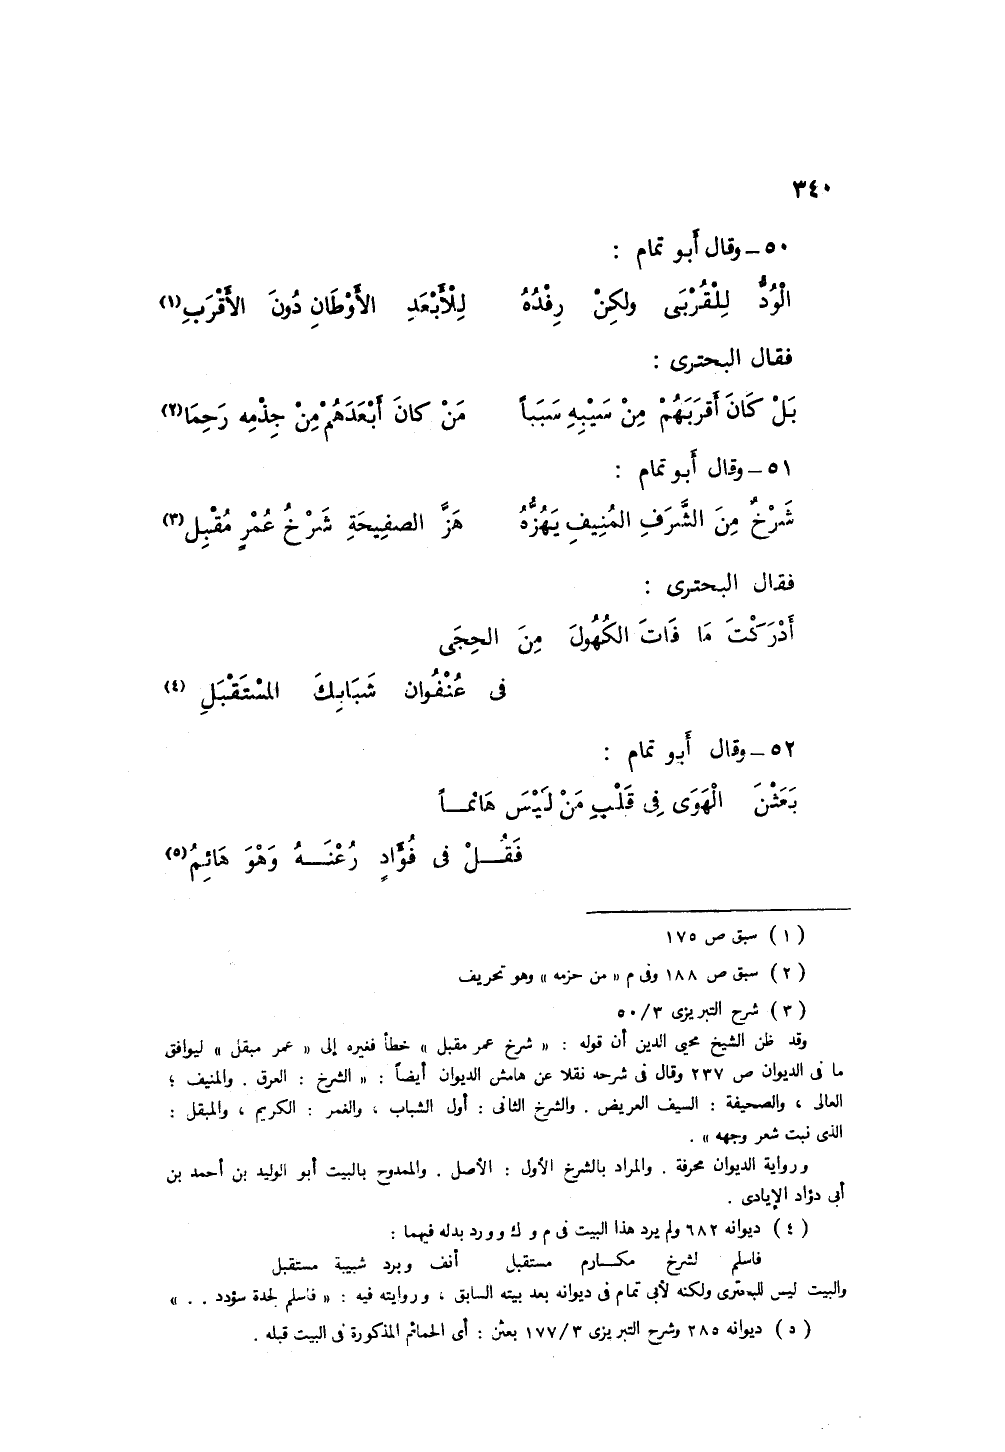 ٣٤٠
٥٠ – وقال أبو تمام :
الْوُدُّ لِلْقُرْبَى ولكِنْ رِفْدُهُ لِلْأَبْعَدِ الأَوْطَانِ دُونَ الأَقْرَبِ(١)
فقال البحترى :
بَلْ كَانَ أَقرَبَهُمْ مِنْ سَيْبِهِ سَبَباً مَنْ كانَ أَبْعَدَهُمْ مِنْ جِذْمِه رَحِمَا(٢)
٥١ – وقال أبو تمام :
شَرْخٌ مِنَ الشَّرَفِ المُنِيفِ يَهُزُّهُ هَزَّ الصفِيحَةِ شَرْخُ عُمْرٍ مُقْبِلِ(٣)
فقال البحترى :
أَدْرَكْتَ مَا فَاتَ الكُهُولَ مِنَ الحِجَى
فى عُنْفُوان شَبَابِكَ المُسْتَقْبَلِ (٤)
٥٢ – وقال أبو تمام :
بَعَثْنَ الْهَوَى فِى قَلْبِ مَنْ لَيْسَ هَائماً
فَقُلْ فى فُؤَادٍ رُعْنَهُ وَهْوَ هَائِمُ(٥)
( ١ ) سبق ص ١٧٥
( ٢ ) سبق ص ١٨٨ وفى م « من حزمه » وهو تحريف
( ٣ ) شرح التبريزى ٥٠/٣
وقد ظن الشيخ محيى الدين أن قوله : « شرخ عمر مقبل » خطأ فغيره إلى « عمر مبقل » ليوافق
ما فى الديوان ص ٢٣٧ وقال فى شرحه نقلا عن هامش الديوان أيضاً : « الشرخ : العرق . والمنيف ؛
العالى ، والصحيفة : السيف العريض . والشرخ الثانى : أول الشباب ، والغمر : الكريم ، والمبقل :
الذى نبت شعر وجهه » .
ورواية الديوان محرفة . والمراد بالشرخ الأول : الأصل . والممدوح بالبيت أبو الوليد بن أحمد بن
أبى دؤاد الإيادى .
( ٤ ) ديوانه ٦٨٢ ولم يرد هذا البيت فى م و ك وورد بدله فيهما :
فاسلم لشرخ مكارم مستقبل أنف وبرد شبيبة مستقبل
والبيت ليس للبحترى ولكنه لأبى تمام فى ديوانه بعد بيته السابق ، وروايته فيه : « فاسلم لجدة سؤدد . . »
( ٥ ) ديوانه ٢٨٥ وشرح التبريزى ١٧٧/٣ بعثن : أى الحمائم المذكورة فى البيت قبله .